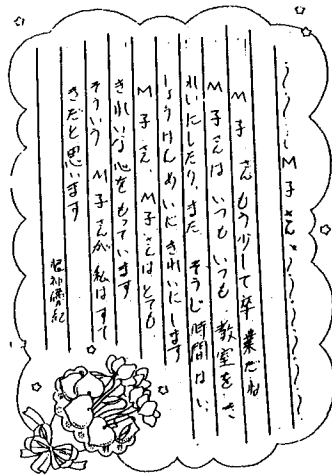 ～～～～M子さん～～～～～
M子さんもう少しで卒業だね
M子さんはいつもいつも教室をき
れいにしたり、また、そうじ時間はい
しょうけんめいにきれいにします
M子さん、M子さんはとても
きれいな心をもっています
そういう M子さんが私はすて
きだと思います